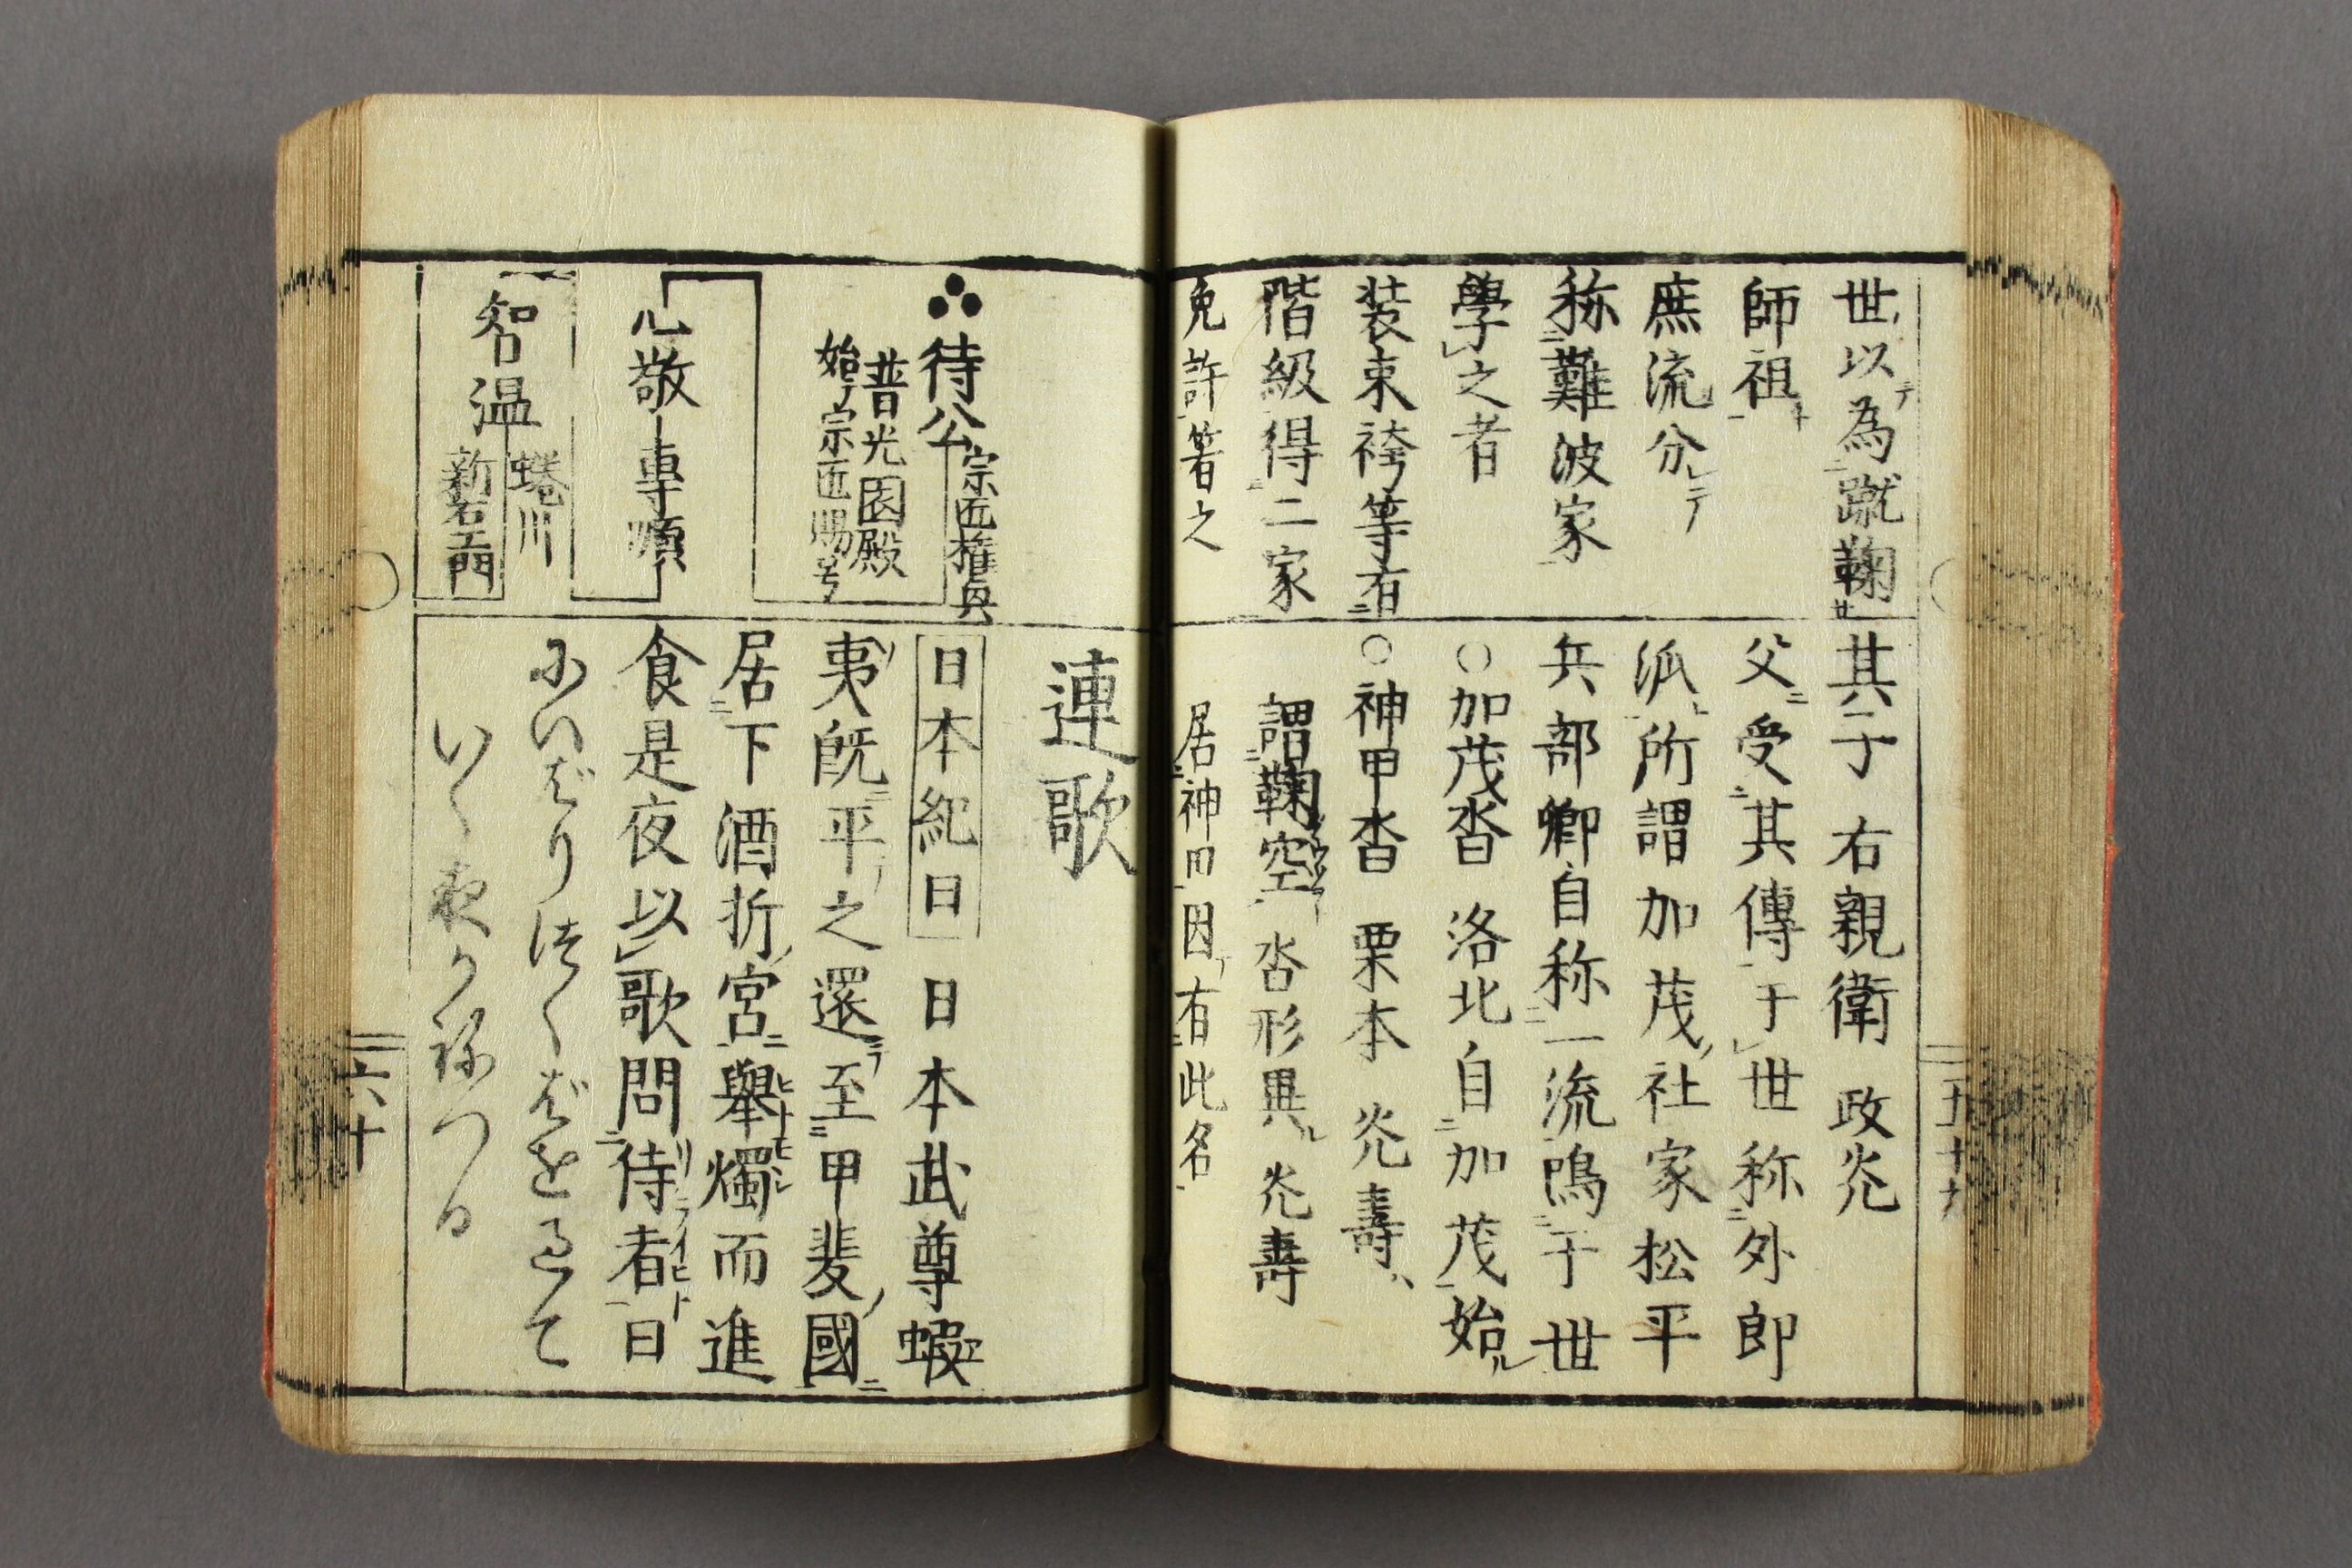 世以テ為蹴鞠
師祖ト
庶流分レテ
称難波家
學之者
装束袴等有
階級得二家
免許着之
其子 右親衛 政㒵
父ニ受其傳于世称外郎
派所謂加茂ノ社家松平
兵部卿自称一流鳴于世
○加茂沓 洛北自加茂始ル
○神甲沓 栗本 㒵壽
謂鞠空沓形異ル 㒵壽
居神田因有此名
五十九
待公
宗匠権輿
普光園殿
始テ宗匠賜号
心敬
専順
智温
蜷川
新右エ門
連歌
日本紀曰 日本武尊蝦
夷ノ既平之還テ至甲斐ノ國
居下酒折ノ宮ニ舉燭而進
食是夜以歌問侍者曰
にいばりつくばをこえて
いく夜かねつる
六十